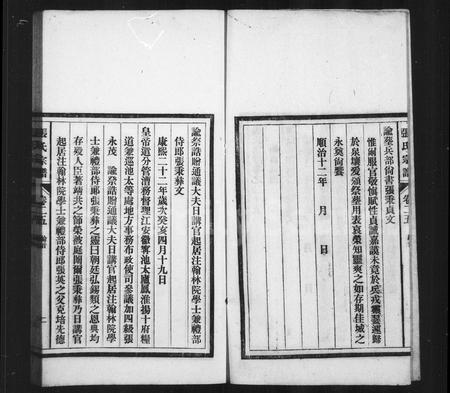 張氏宗譜
卷二五
諭葬兵部尙書張秉貞文
惟爾服官敬愼賦性貞誠嘉謨未竟於兵戎靈翣遽歸
於泉壤爰頒祭葬用表哀榮知靈爽之如存期佳城之
永奠尙饗
順治十二年　月　日
諭祭誥贈通議大夫日講官起居注翰林院學士兼禮部
侍郎張秉彝文
康熙二十二年歲次癸亥四月十九日
皇帝遣分管漕務督理江安徽寧池太廬鳳淮揚十府糧
道兼巡池太等處地方事務布政使司參議加四級張
永茂　諭祭誥贈通議大夫日講官起居注翰林院學
士兼禮部侍郎張秉彝之靈曰朝廷弘錫類之恩典均
存歿人臣著靖共之節榮被庭闈爾張秉彝乃日講官
起居注翰林院學士兼禮部侍郎張英之父克培先德
張氏宗譜
卷二五